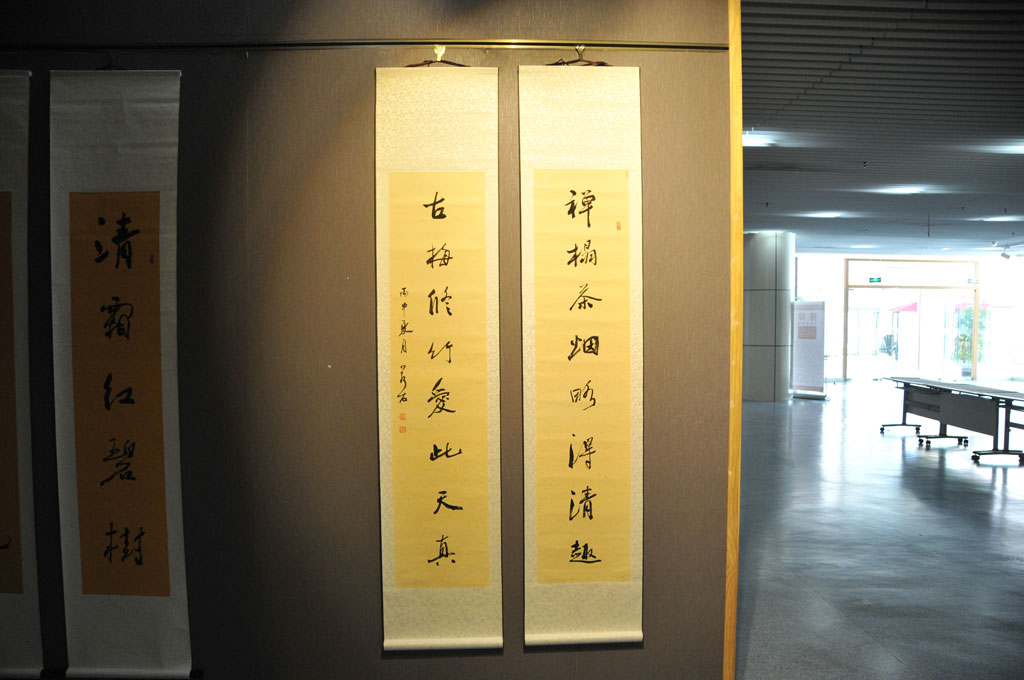 禅榻茶烟略得清趣
古梅修竹爱此天真
丙申夏月
清霜红碧樹